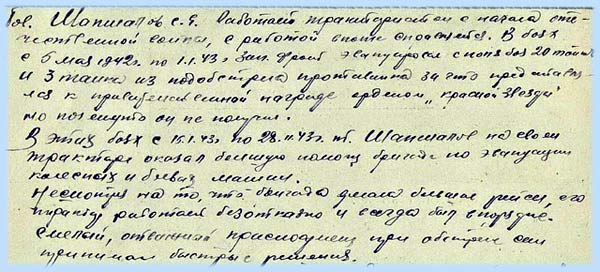 тов. Шапшалов С.Я. Работает трактористом с начала оте-
чественной войны, с работой вполне справляется. В боях
с 6 мая 1942г. по 1.1.43г. Зап. фронт эвакуировал с поля боя 20 танков
и 3 танка из под обстрела противника за что представлял
ся к правительственной награде орденом „Красной Звезды"
но почемуто он не получил.
В этих боях с 15.1.43г по 28.11.43г. т. Шапшалов на своем
тракторе оказал большую помощь бригаде по эвакуации
колесных и боевых машин.
Несмотря на то, что бригада делала большие рейсы, его
трактор работает безотказно и всегда был в порядке.
Смелый, отважный при обстреле сам
принимал быстрые решения.